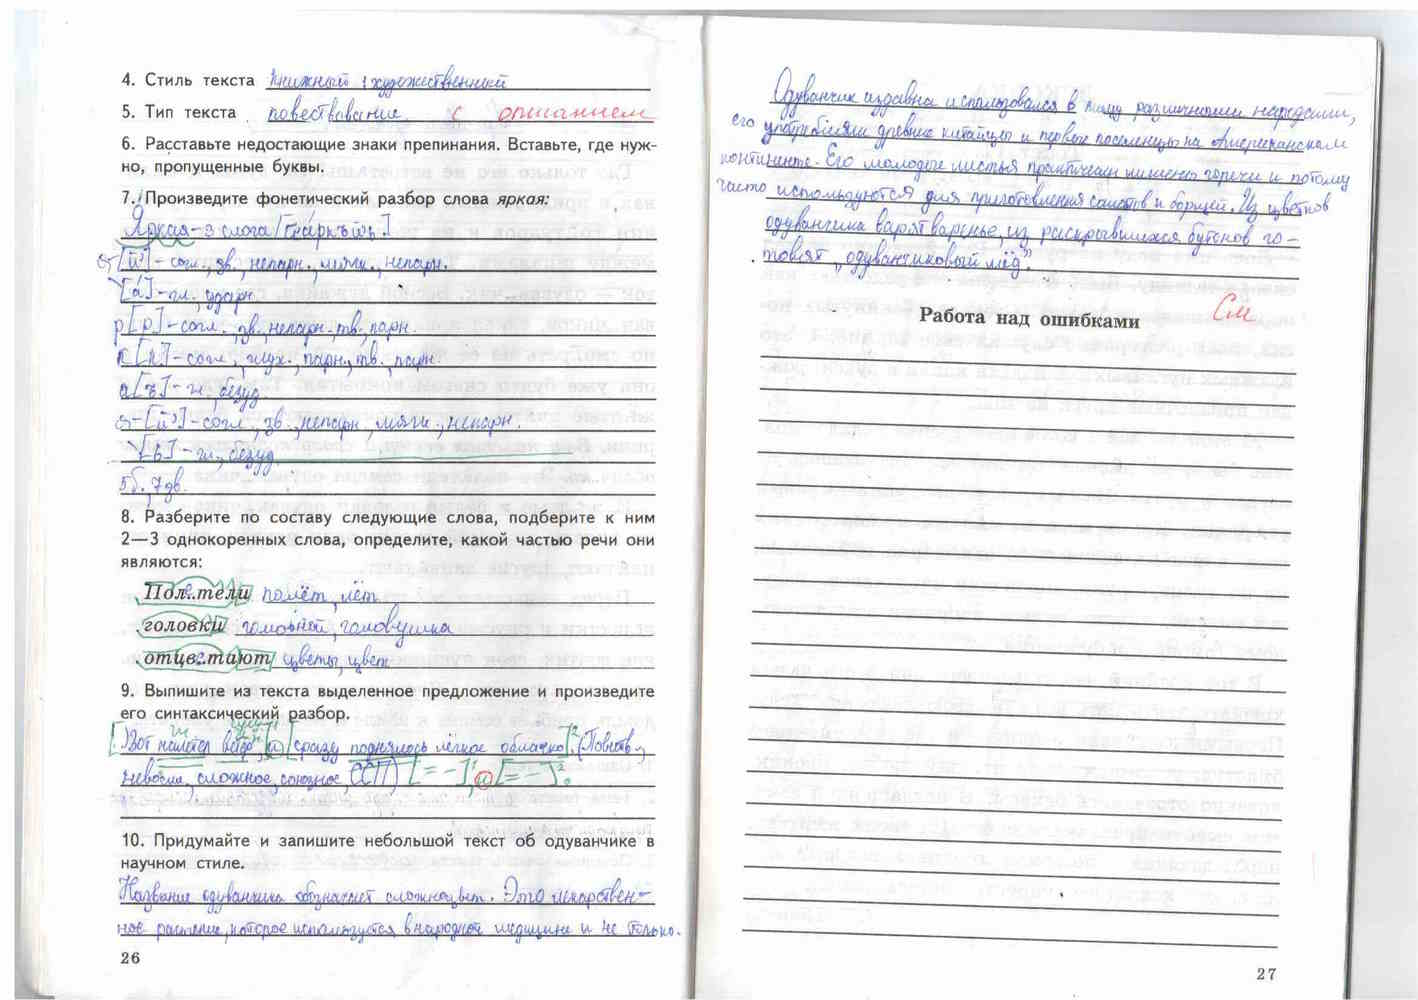 4. Стиль текста книжный, художественный
5. Тип текста повествование с описанием
6. Расставьте недостающие знаки препинания. Вставьте, где нуж-
но, пропущенные буквы.
7. Произведите фонетический разбор слова яркая:
Яркая - 3 слога
[й'] - согл., зв., непарн., мягк., непарн.
[а́] - гл., ударн.
р [р] - согл., зв., непарн. тв., парн.
к [к] - согл., глух., парн., тв., парн.
а [ъ] - гл., безуд.
я - [й'] - согл., зв., непарн., мягк., непарн.
[ь] - гл., безуд.
5б., 7зв.
8. Разберите по составу следующие слова, подберите к ним
2—3 однокоренных слова, определите, какой частью речи они
являются:
Пол..тели полёт, лёт
головки головной, головушка
отцв..тают цветы, цвет
9. Выпишите из текста выделенное предложение и произведите
его синтаксический разбор.
[Вот налетел ветер], и [сразу поднялось лёгкое облачко]. (Повеств.,
невоскл., сложное, союзное, ССП) [= -], и [= -].
10. Придумайте и запишите небольшой текст об одуванчике в
научном стиле.
Название одуванчика обозначает сложноцвет. Это лекарствен-
ное растение, которое используется в народной медицине и не только.
26
Одуванчик издавна использовался в пищу различными народами,
его употребляли древние китайцы и первые поселенцы на Американском
континенте. Его молодые листья практически лишены горечи и потому
часто используются для приготовления салатов и борщей. Из цветков
одуванчика варят варенье, из раскрывшихся бутонов го-
товят „одуванчиковый мёд”.
См
Работа над ошибками
27